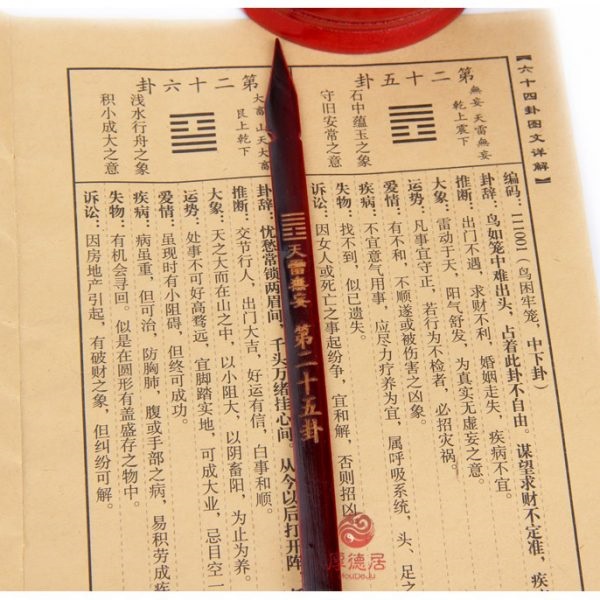 【六十四卦图文详解】
第二十五卦
無妄 天雷無妄
乾上震下
石中蕴玉之象
守旧安常之意
编码：111001（鸟困牢笼，中下卦）
卦辞：鸟如笼中难出头，占着此卦不自由。谋望求财不定准，疾
推断：出门不遇，求财不利，婚姻走失，疾病不宜。
大象：雷动于天，阳气舒发，为真实无虚妄之意。
运势：凡事宜守正，若行为不检者，必招灾祸。
爱情：有不和，不顺遂或被伤害之凶象。
疾病：不宜意气用事，应尽力疗养为宜，属呼吸系统，头、足之
失物：找不到，似已遗失。
诉讼：因女人或死亡之事起纷争，宜和解，否则招凶
天雷無妄 第二十五卦
第二十六卦
大畜 山天大畜
艮上乾下
浅水行舟之象
积小成大之意
卦辞：忧愁常锁两眉间，千头万绪挂心间。从今以后打开阵
推断：交节行人，出门大吉，好运有信，白事和顺。
大象：天之大而在山之中，以小阻大，以阴畜阳，为止为养。
运势：处事不可好高骛远，宜脚踏实地，可成大业，忌目空一
爱情：虽现时有小阻碍，但终可成功。
疾病：病虽重，但可治，防胸肺，腹或手部之病，易积劳成疾
失物：有机会寻回。似是在圆形有盖盛存之物中。
诉讼：因房地产引起，有破财之象，但纠纷可解。
厚德居
HouDeJu